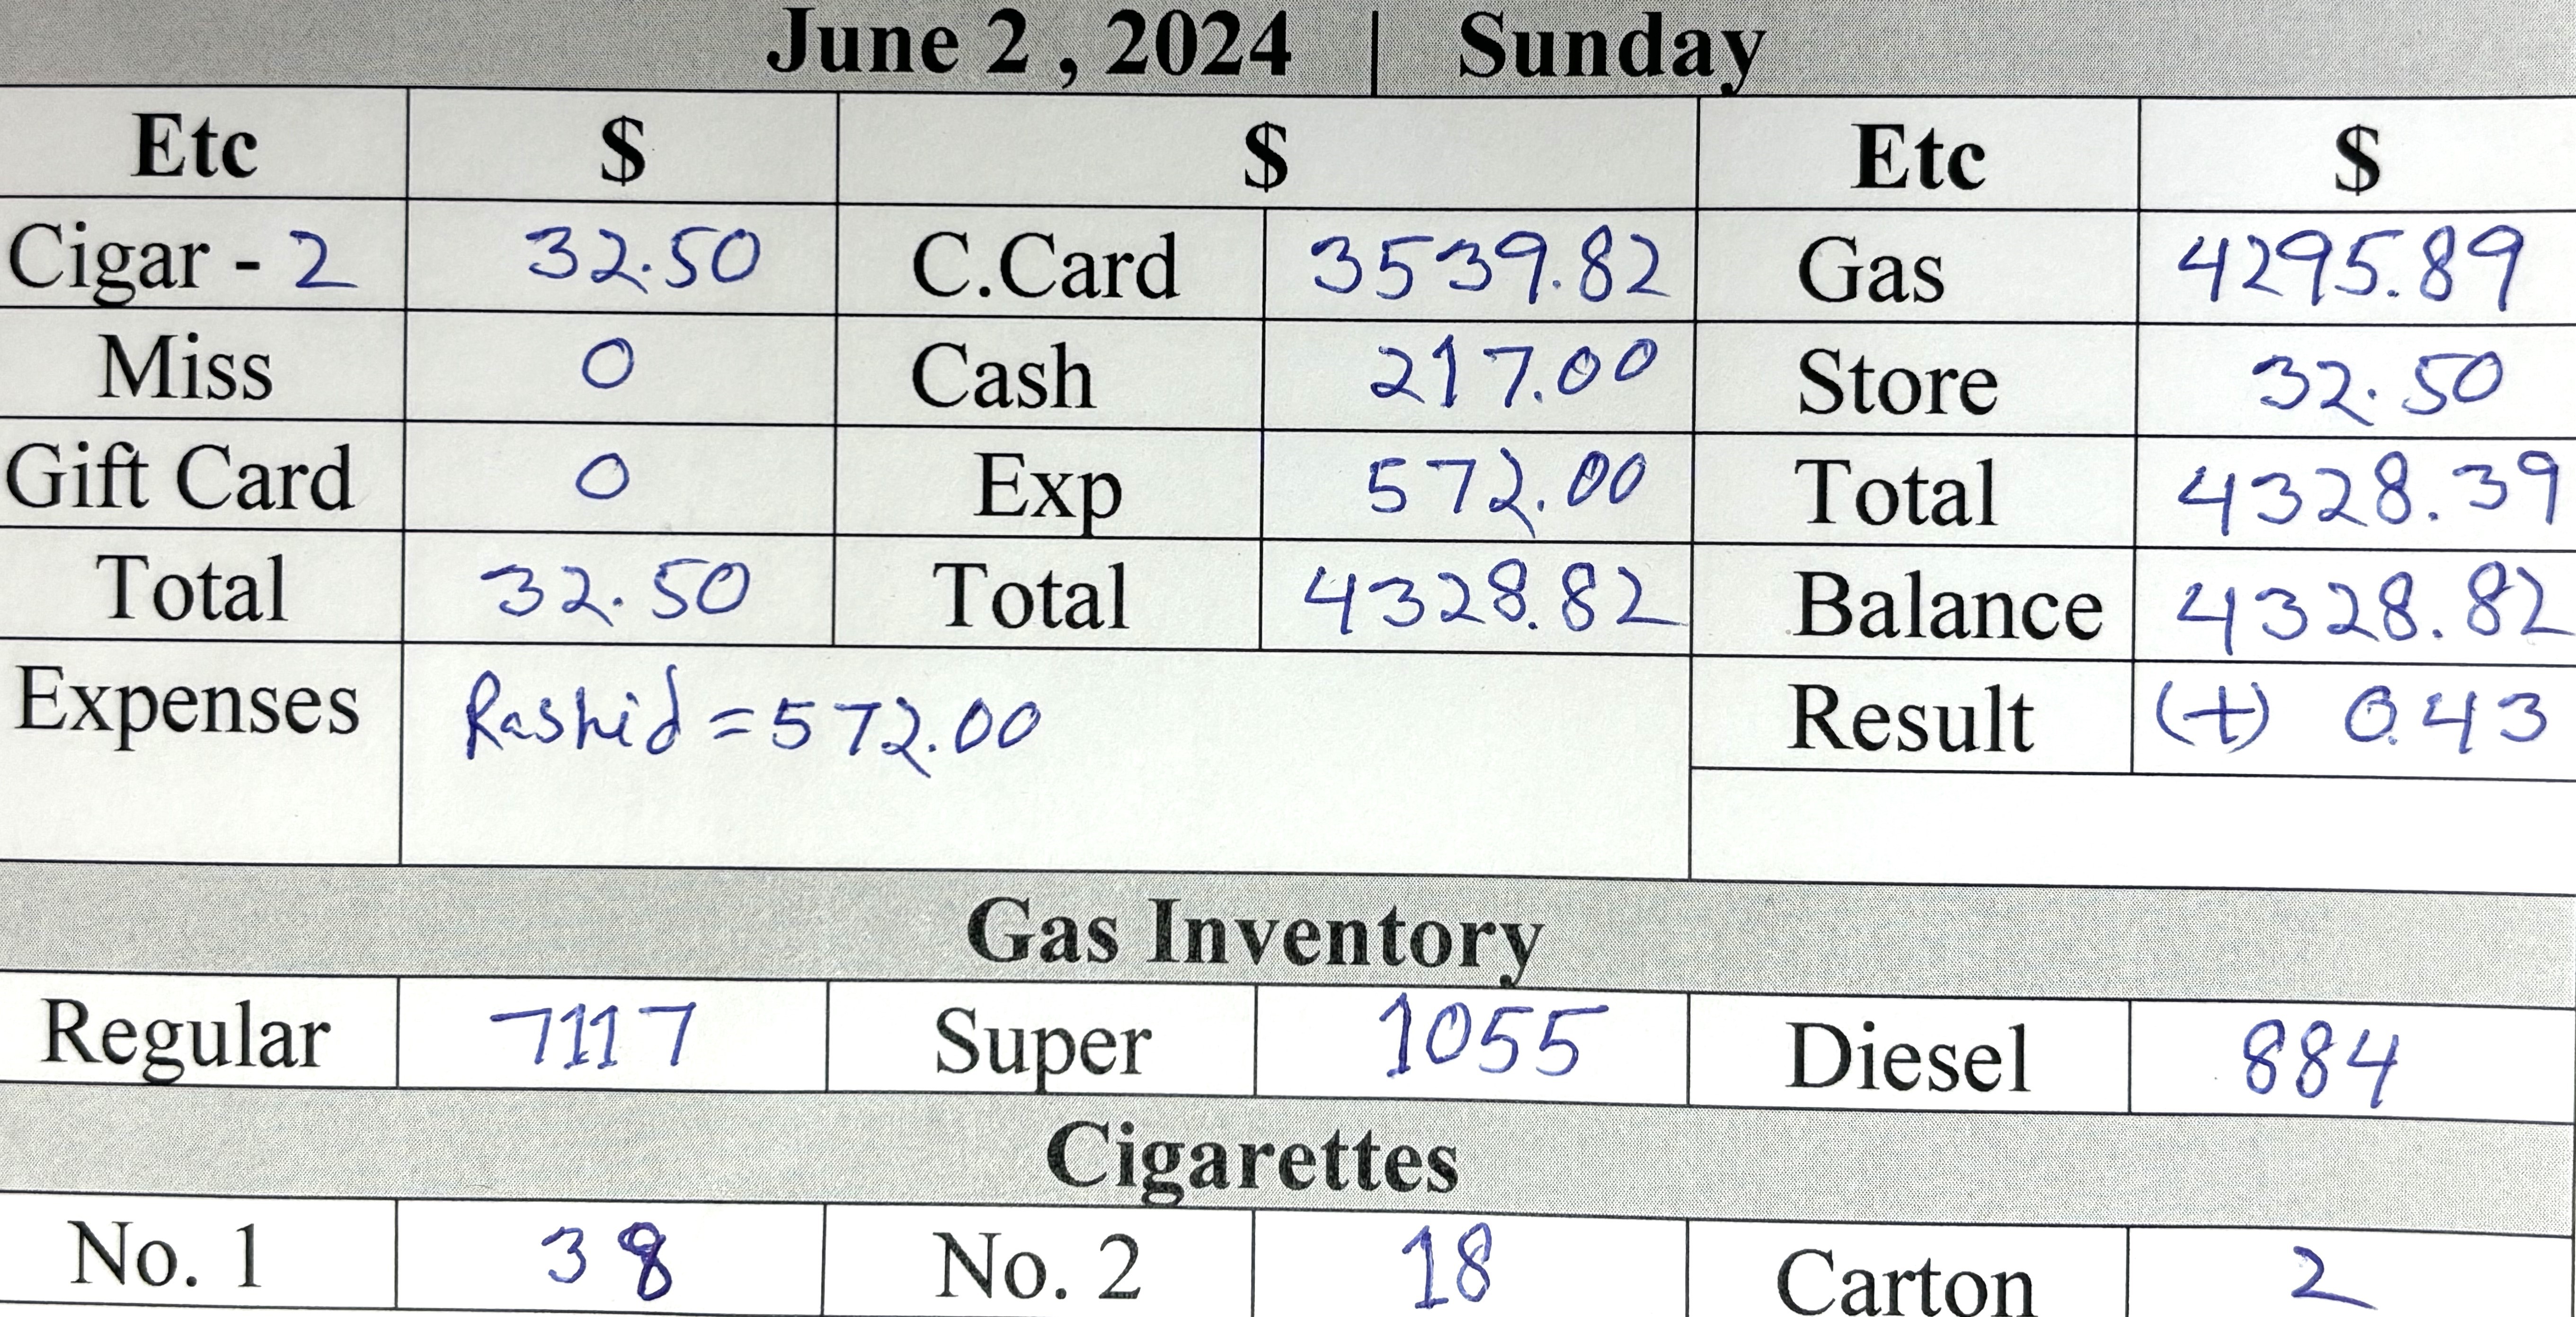 June 2 , 2024 | Sunday
Etc $ $ Etc $
Cigar - 2 32.50 C.Card 3539.82 Gas 4295.89
Miss 0 Cash 217.00 Store 32.50
Gift Card 0 Exp 572.00 Total 4328.39
Total 32.50 Total 4328.82 Balance 4328.82
Expenses Rashid = 572.00 Result (+) 0.43
Gas Inventory
Regular 7117 Super 1055 Diesel 884
Cigarettes
No. 1 38 No. 2 18 Carton 2